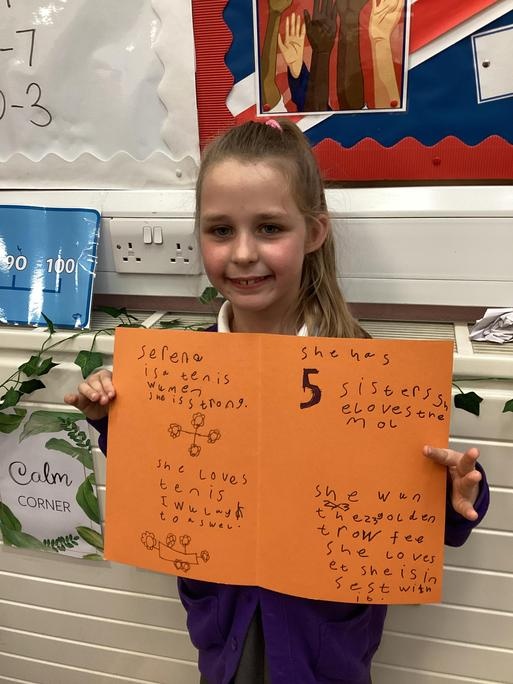 -7
0-3
90 100
Calm
CORNER
serena
is a tenis
wumen
she is strong.
she loves
tenis
I wu layk
to aswel.
she has
5 sisters sh
e loves the
m ol
she wun
the 23 golden
trow fee
she loves
et she is in
sest with
it.